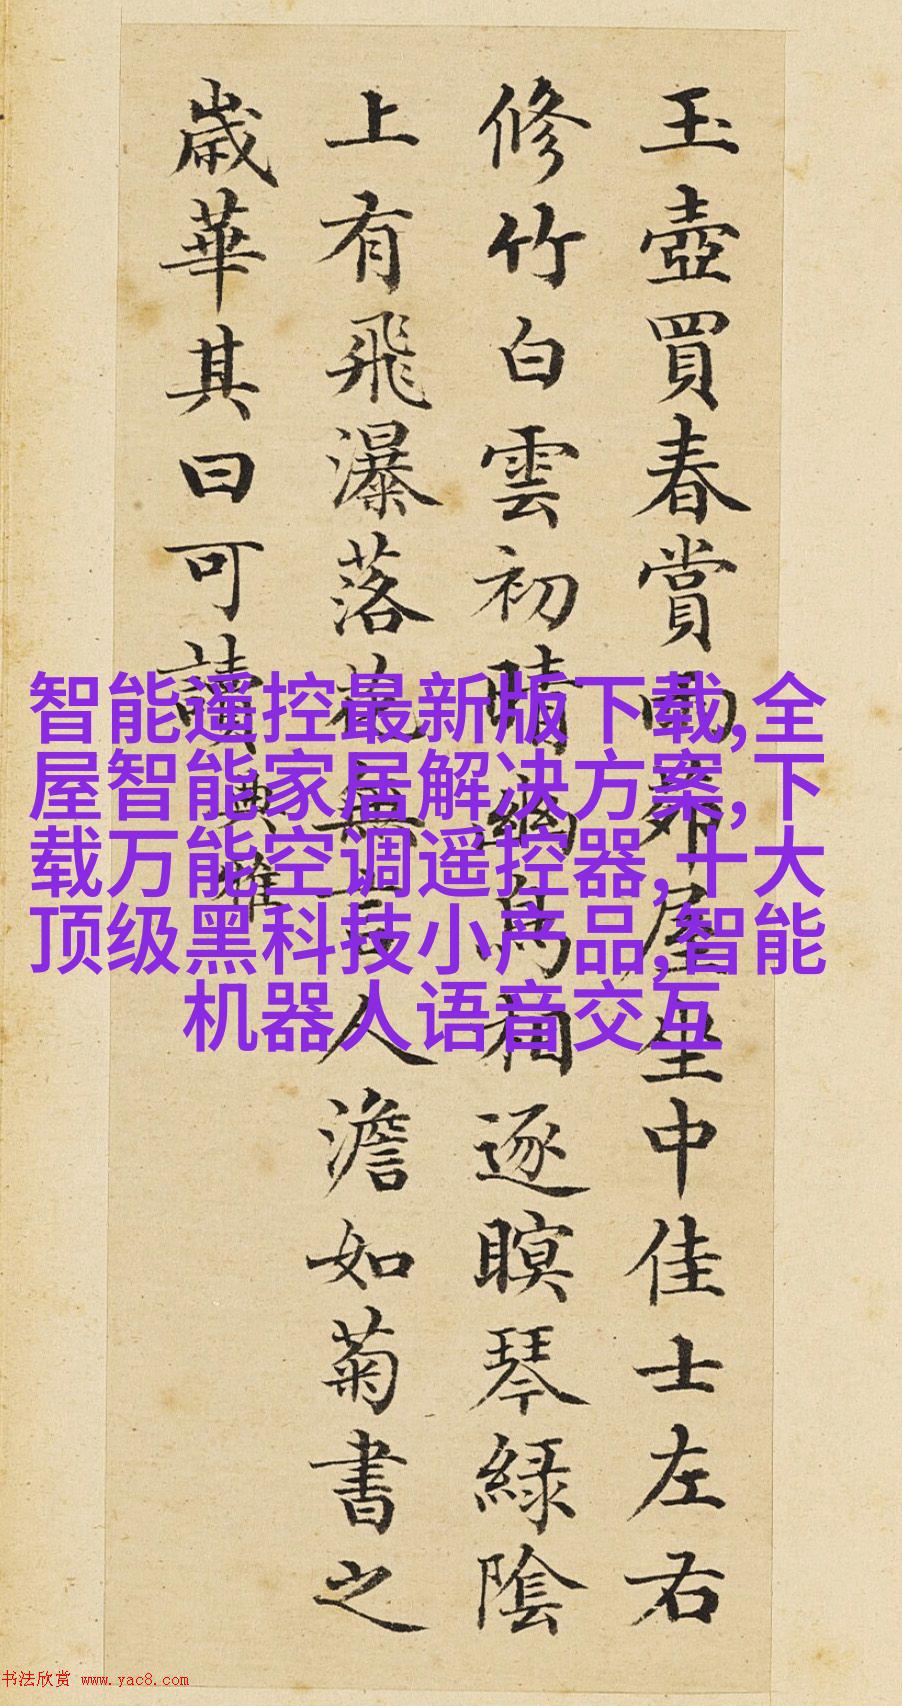 玉壺買春賞雨茆屋坐中佳士左右
修竹白雲初晴幽鳥相逐瞑琴綠陰
上有飛瀑落花無言人澹如菊書之
歲華其曰可讀
典雅
智能遥控最新版下载,全
屋智能家居解决方案,下
载万能空调遥控器,十大
顶级黑科技小产品,智能
机器人语音交互
书法欣赏 www.yac8.com